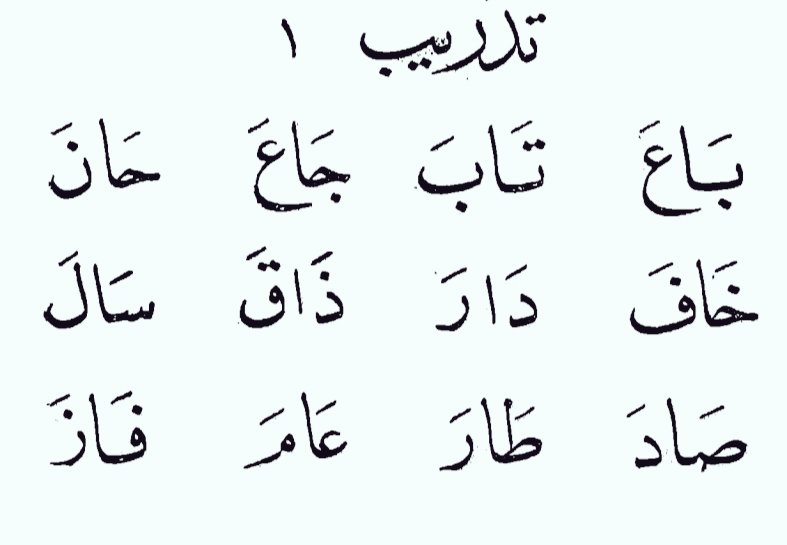 تدريب ١
بَاعَ تَابَ جَاعَ حَانَ
خَافَ دَارَ ذَاقَ سَالَ
صَادَ طَارَ عَامَ فَازَ